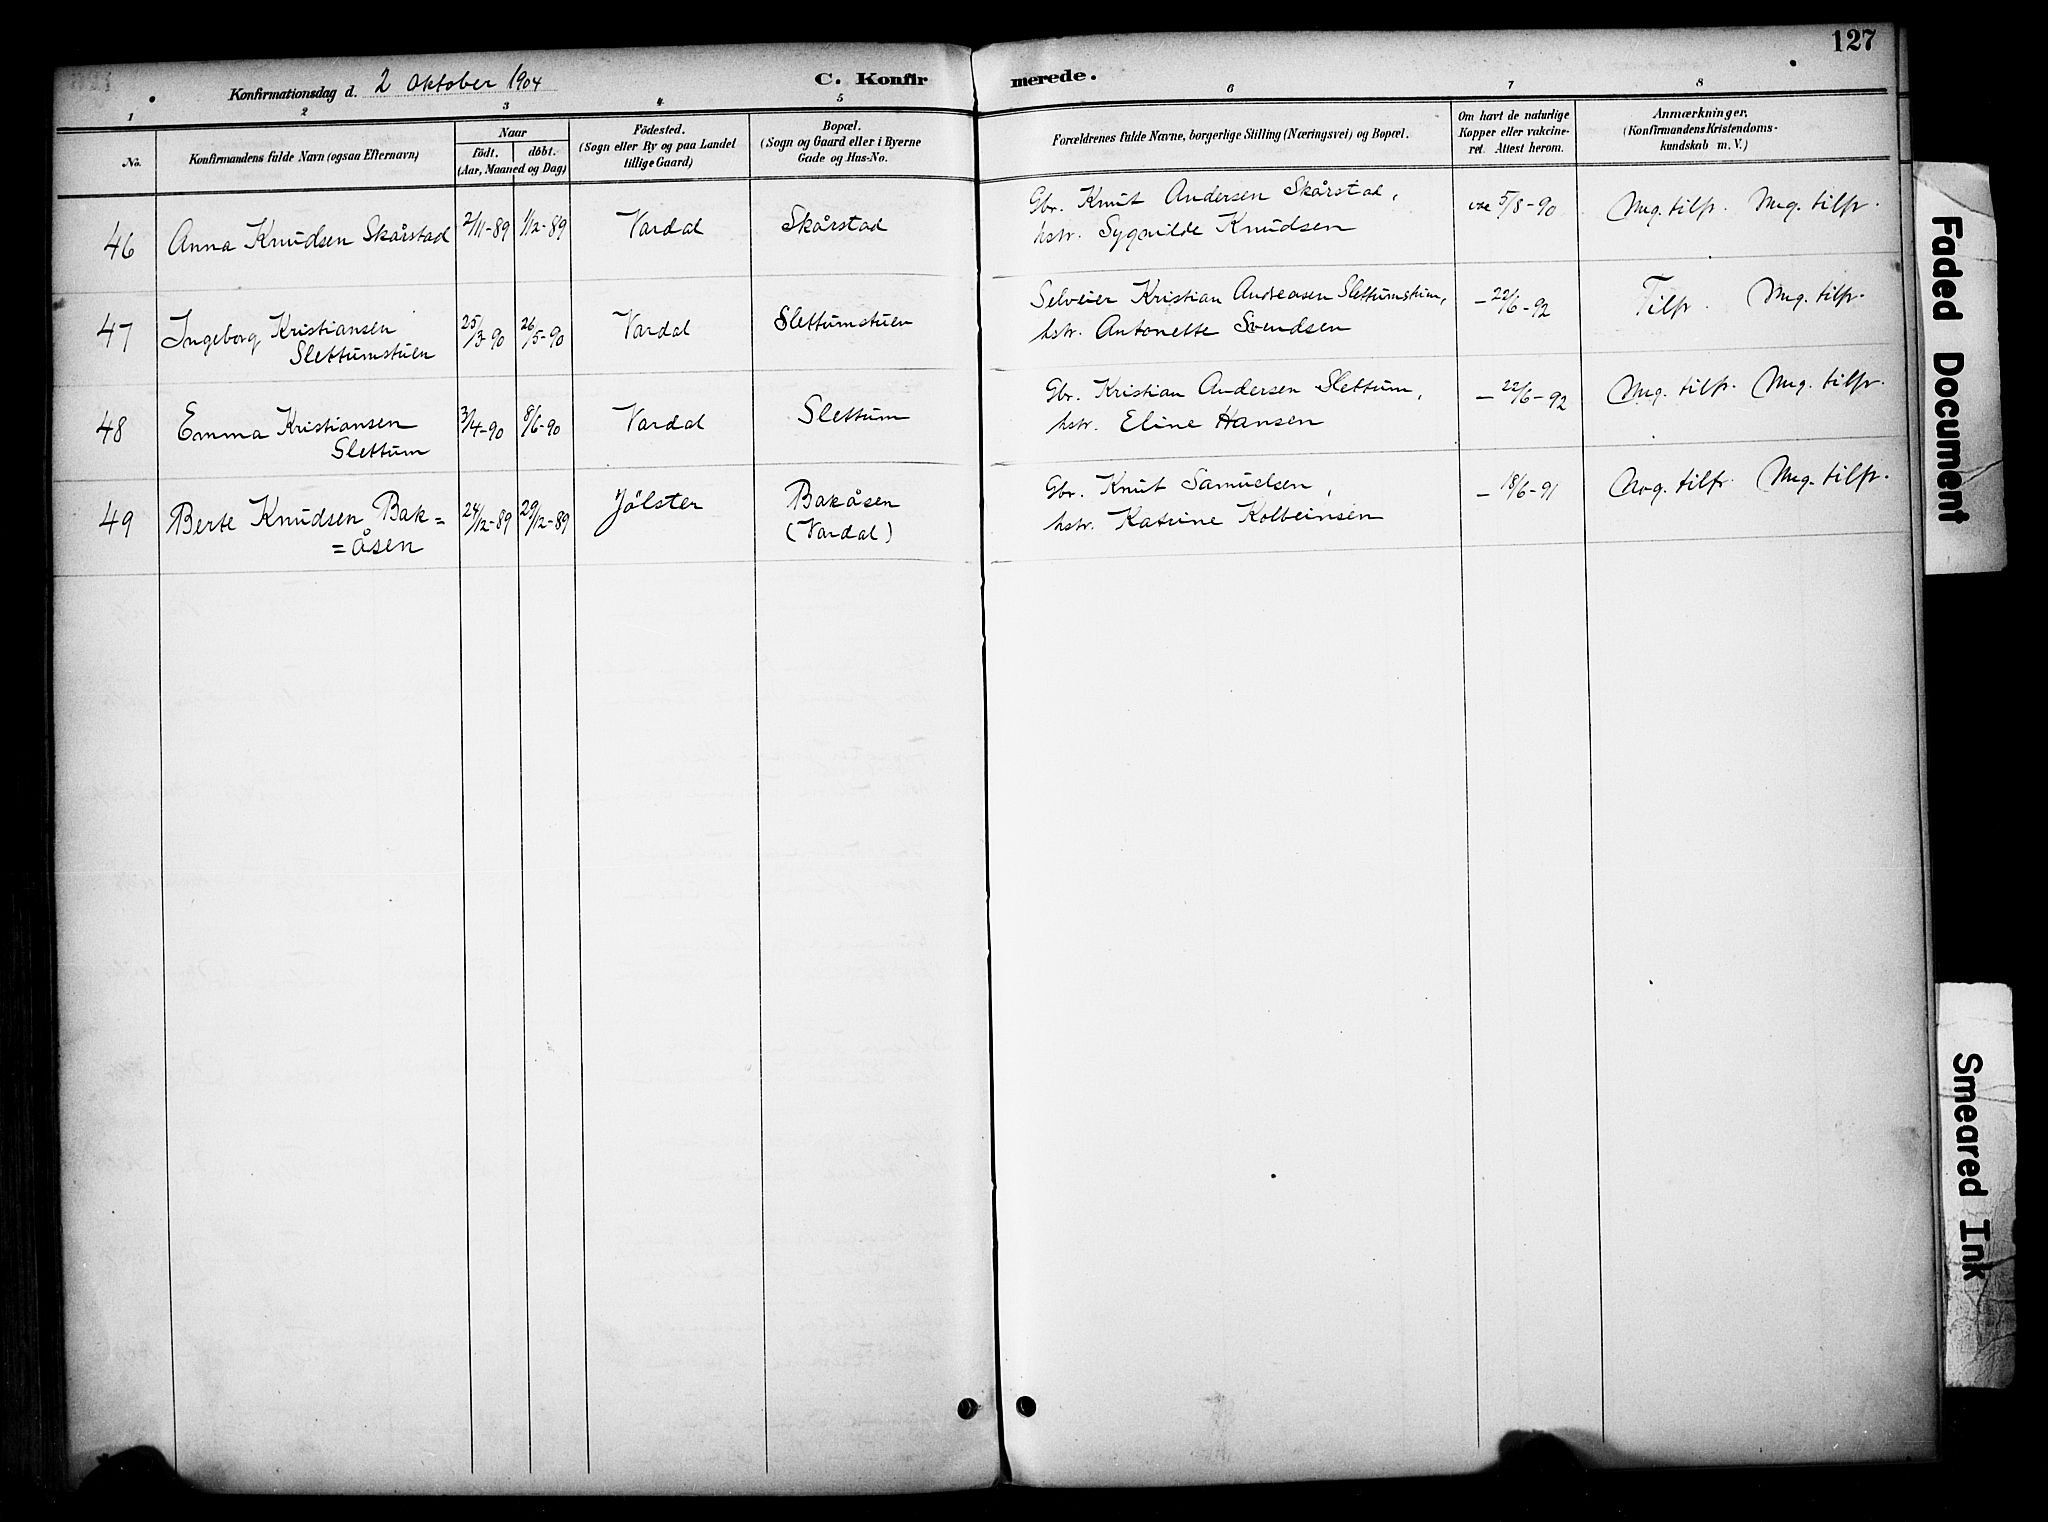 127
Konfirmationsdag d. 2 Oktober 1904
C. Konfirmerede.
1 2 3 4 5 6 7 8
No.
Konfirmandens fulde Navn (ogsaa Efternavn)
Naar
födt. döbt.
(Aar, Maaned og Dag)
Födested.
(Sogn eller By og paa Landet
tillige Gaard)
Bopæl.
(Sogn og Gaard eller i Byerne
Gade og Hus-No.
Forældrenes fulde Navne, borgerlige Stilling (Næringsvei) og Bopæl.
Om havt de naturlige
Kopper eller vakcine-
ret. Attest herom.
Anmærkninger.
(Konfirmandens Kristendoms-
kundskab m. V.)
46 Anna Knudsen Skårstad 2/11-89 1/12-89 Vardal Skårstad
Gbr. Knut Andersen Skårstad,
hstr. Sygnilde Knudsen
vac 5/8-90 Mcg. tilfr. Mcg. tilfr.
47 Ingeborg Kristiansen
Slettumstuen
25/3-90 26/5-90 Vardal Slettumstuen
Selveier Kristian Andreasen Slettumstuen,
hstr. Antonette Svendsen
- 22/6-92 Tilfr. Mcg. tilfr.
48 Emma Kristiansen
Slettum
3/4-90 8/6-90 Vardal Slettum
Gbr. Kristian Andersen Slettum,
hstr. Eline Hansen
- 22/6-92 Mcg. tilfr. Mcg. tilfr.
49 Berte Knudsen Bak=
=åsen
24/12-89 29/12-89 Jölster Bakåsen
(Vardal)
Gbr. Knut Samuelsen,
hstr. Katrine Kolbeinsen
- 18/6-91 Nog. tilfr. Mcg. tilfr.
Faded Document
Smeared Ink